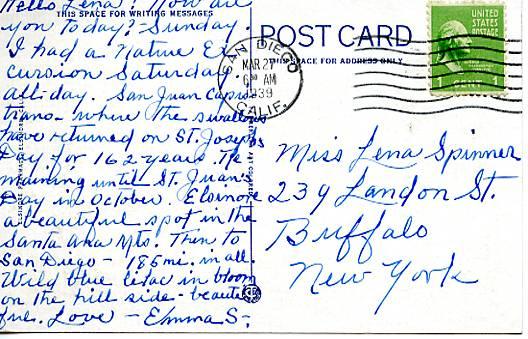 Hello Lena! How are
THIS SPACE FOR WRITING MESSAGES
you today? Sunday
I had a Nature Ex
cursion Saturday
all-day. San Juan Capis-
trano - where the swallows
have returned on St. Joseph's
Day for 162 years. Re
maining until St. Juan's
Day in October. Elsinore
a beautiful spot in the
Santa Ana Mts. Then to
San Diego - 185 mi. in all.
Wild blue lilac in bloom
on the hill side - beauti
ful. Love - Emma S-
POST CARD
THIS SPACE FOR ADDRESS ONLY
SAN DIEGO
MAR 27
6 AM
1939
CALIF.
UNITED
STATES
POSTAGE
1 CENT 1
Miss Lena Spinner
239 Landon St.
Buffalo
New York